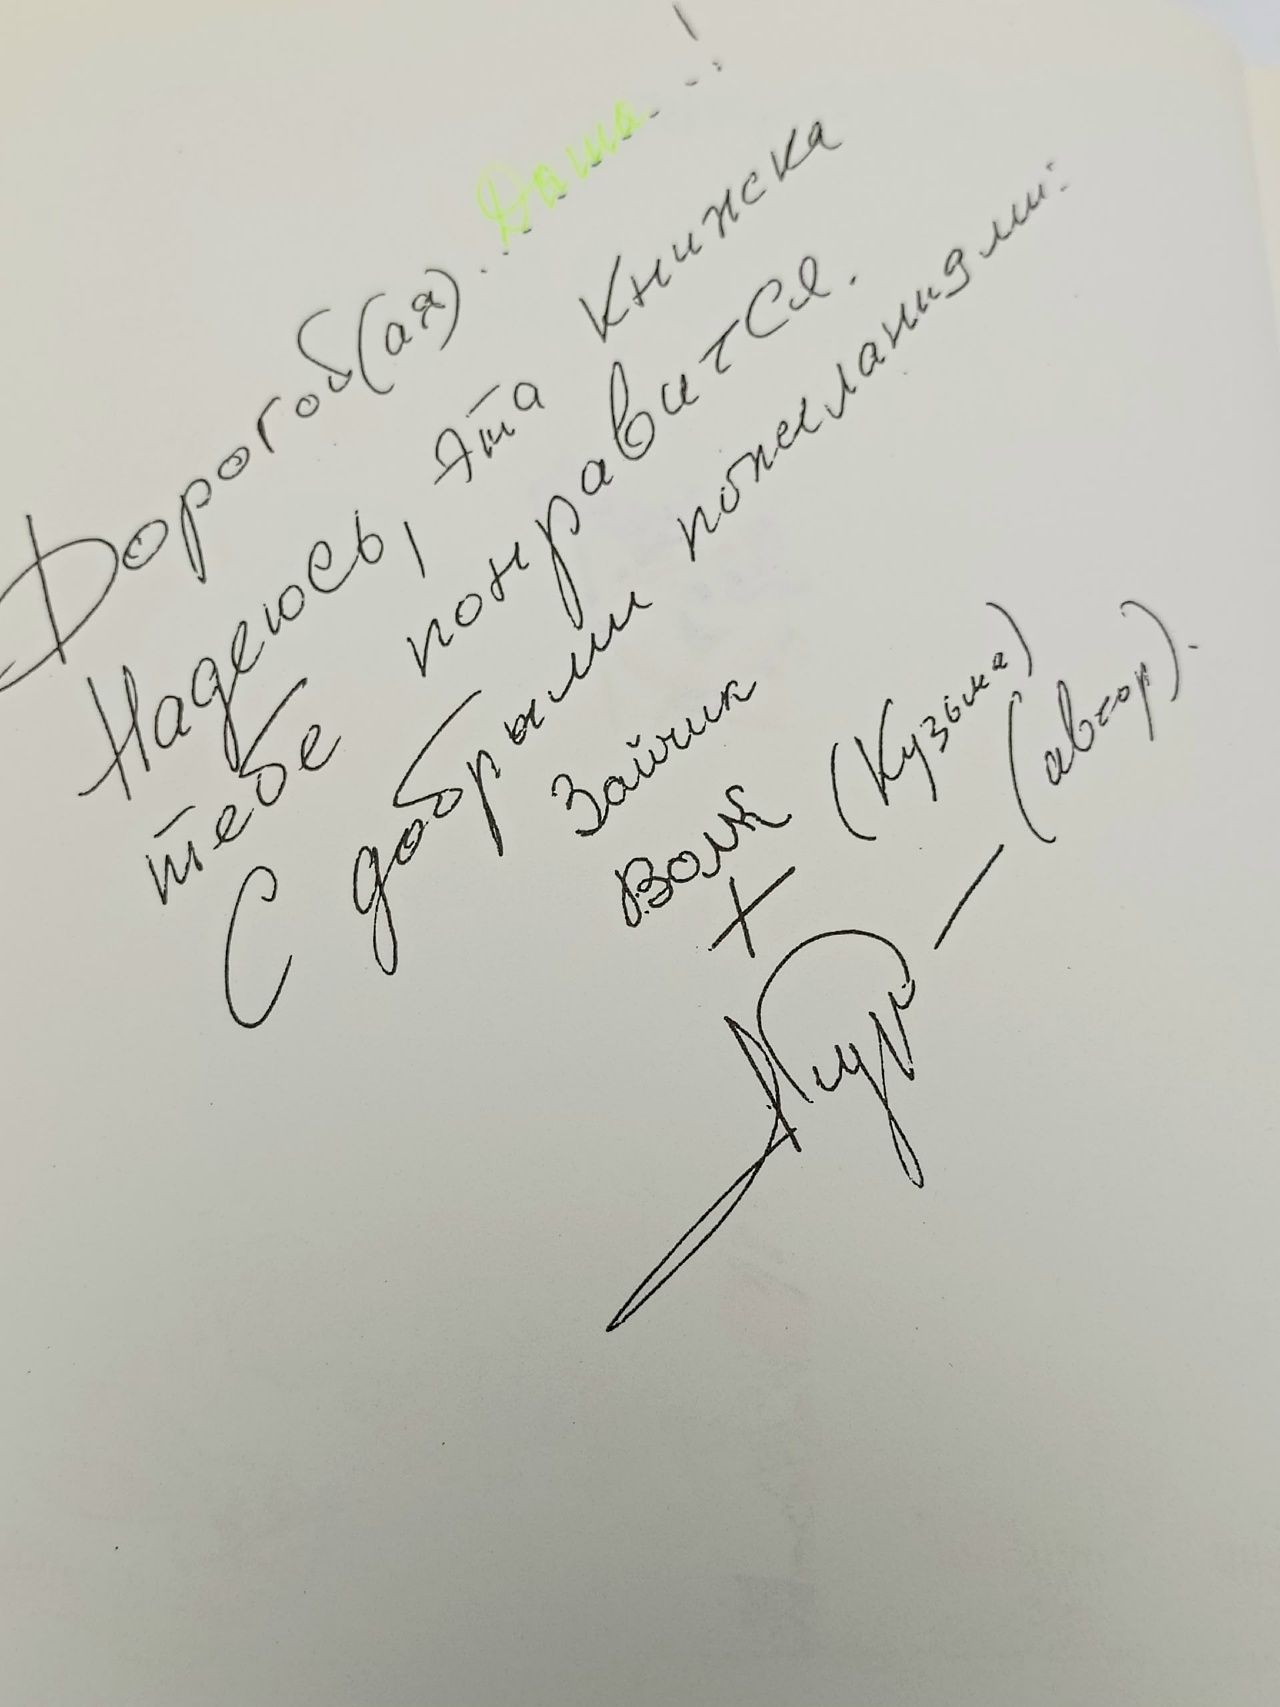 Дорогой(ая)... Даша...!
Надеюсь, эта книжка
тебе понравится.
С добрыми пожеланиями:
Зайчик
Волк (Кузьма)
+
— (автор).